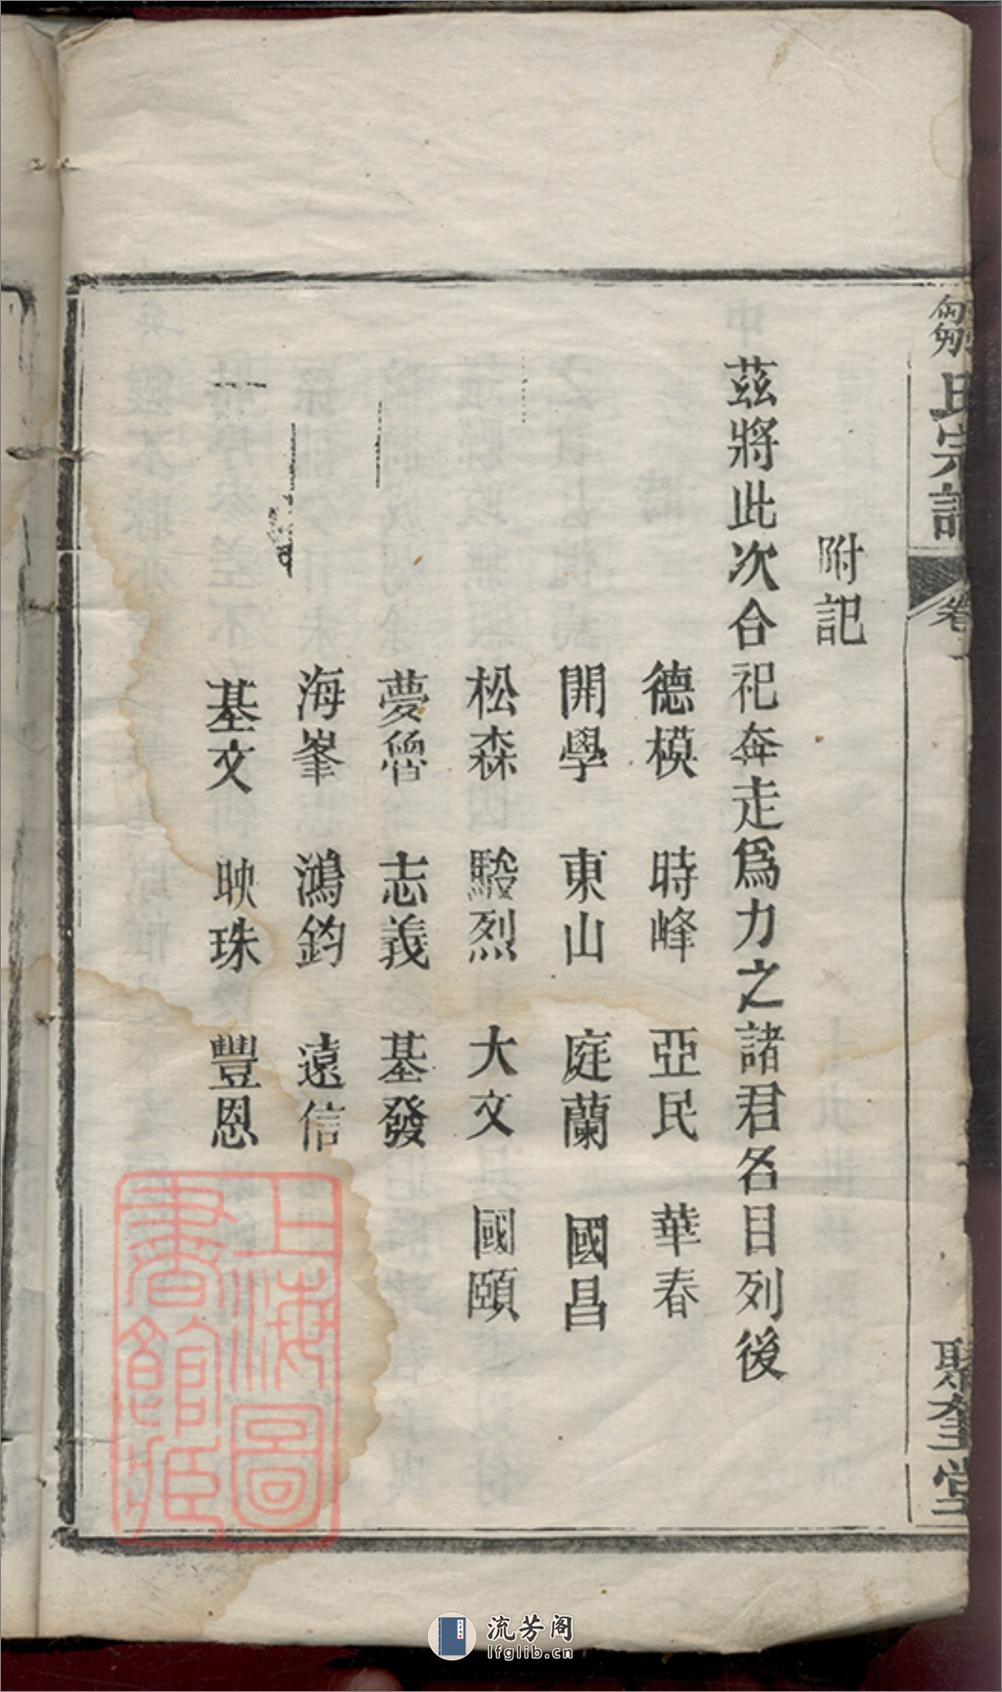 鄒氏宗譜
卷
聚奎堂
附記
茲將此次合祀奔走爲力之諸君名目列後
德模 時峰 亞民 華春
開學 東山 庭蘭 國昌
松森 駿烈 大文 國頤
夢魯 志義 基發
海峯 鴻鈞 遠信
基文 映珠 豐恩
上海圖
書館藏
流芳阁
lfglib.cn